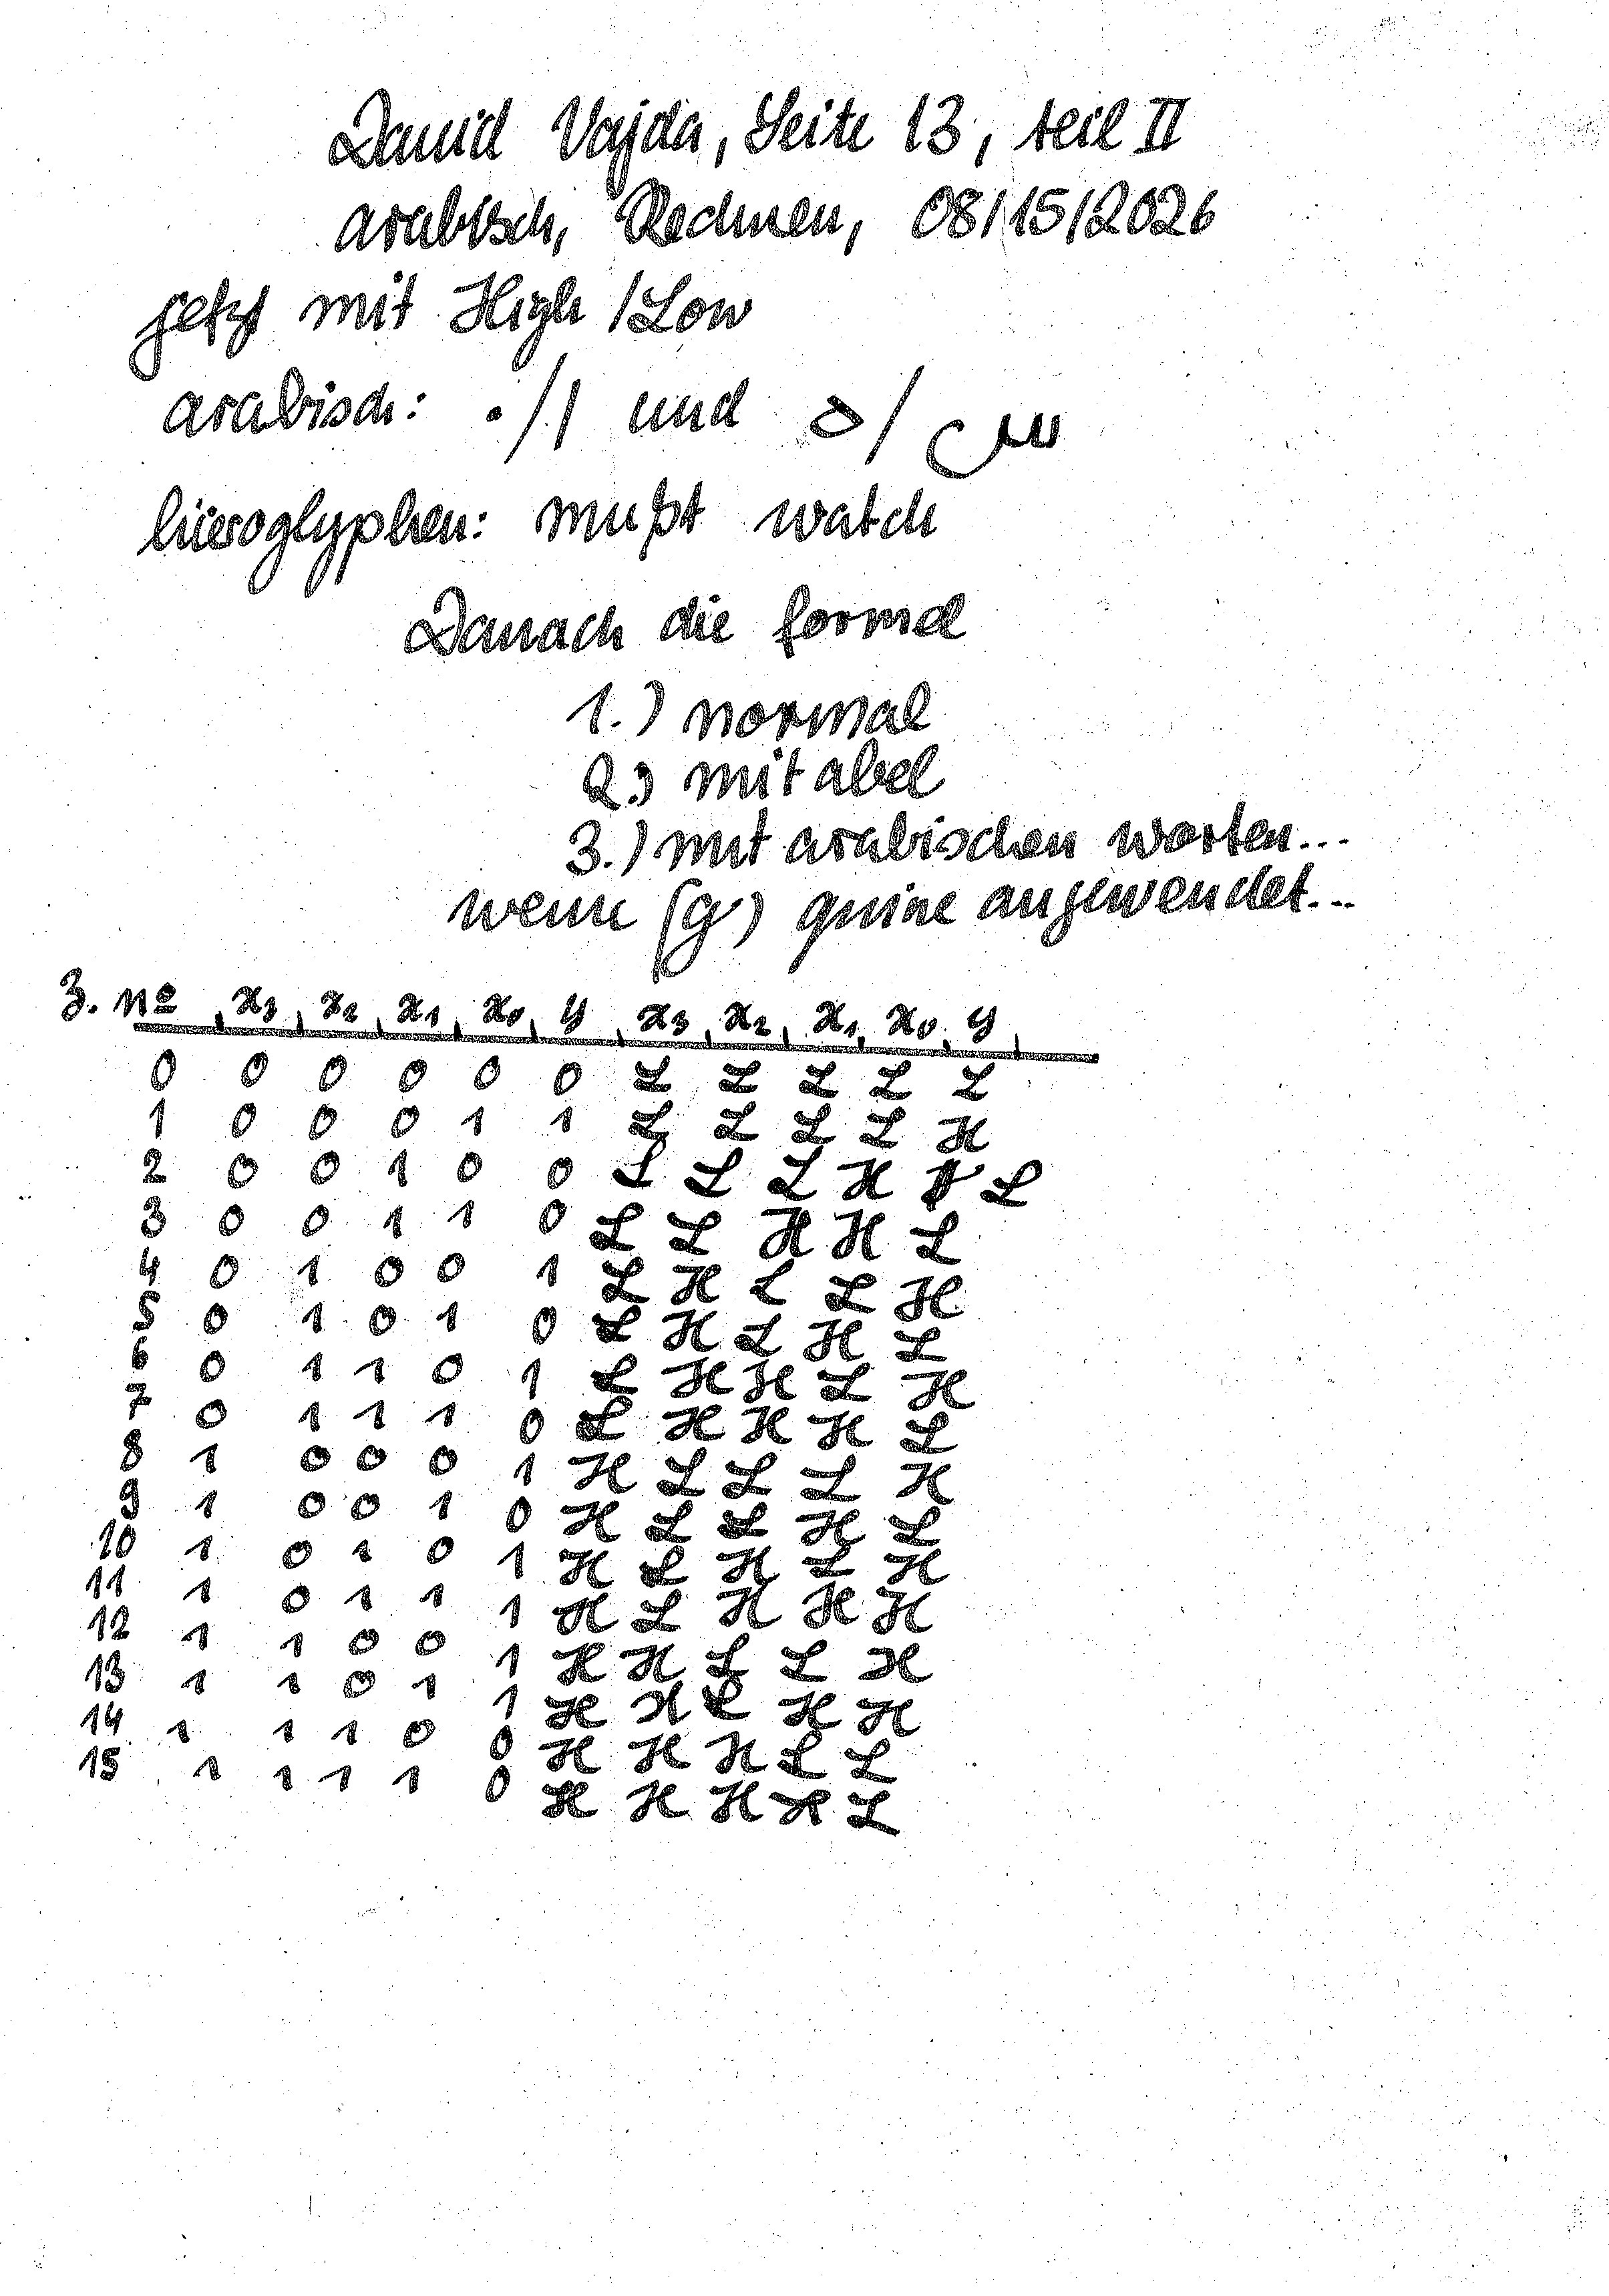 David Vajda, Seite 13, teil II
arabisch, Rechnen, 08/15/2026
jetzt mit High /Low
arabisch: ٠/١ und ه/س
hieroglyphen: mußt watch
Danach die formel
1.) normal
2.) mit abel
3.) mit arabischen worten...
wenn (g) quine angewendet...
z. nº x₃ x₂ x₁ x₀ y x₃ x₂ x₁ x₀ y
0 0 0 0 0 0 L L L L L
1 0 0 0 1 1 L L L L H
2 0 0 1 0 0 L L L H L
3 0 0 1 1 0 L L H H L
4 0 1 0 0 1 L H L L H
5 0 1 0 1 0 L H L H L
6 0 1 1 0 1 L H H L H
7 0 1 1 1 0 L H H H L
8 1 0 0 0 1 H L L L H
9 1 0 0 1 0 H L L H L
10 1 0 1 0 1 H L H L H
11 1 0 1 1 1 H L H H H
12 1 1 0 0 1 H H L L H
13 1 1 0 1 1 H H L H H
14 1 1 1 0 0 H H H L L
15 1 1 1 1 0 H H H H L